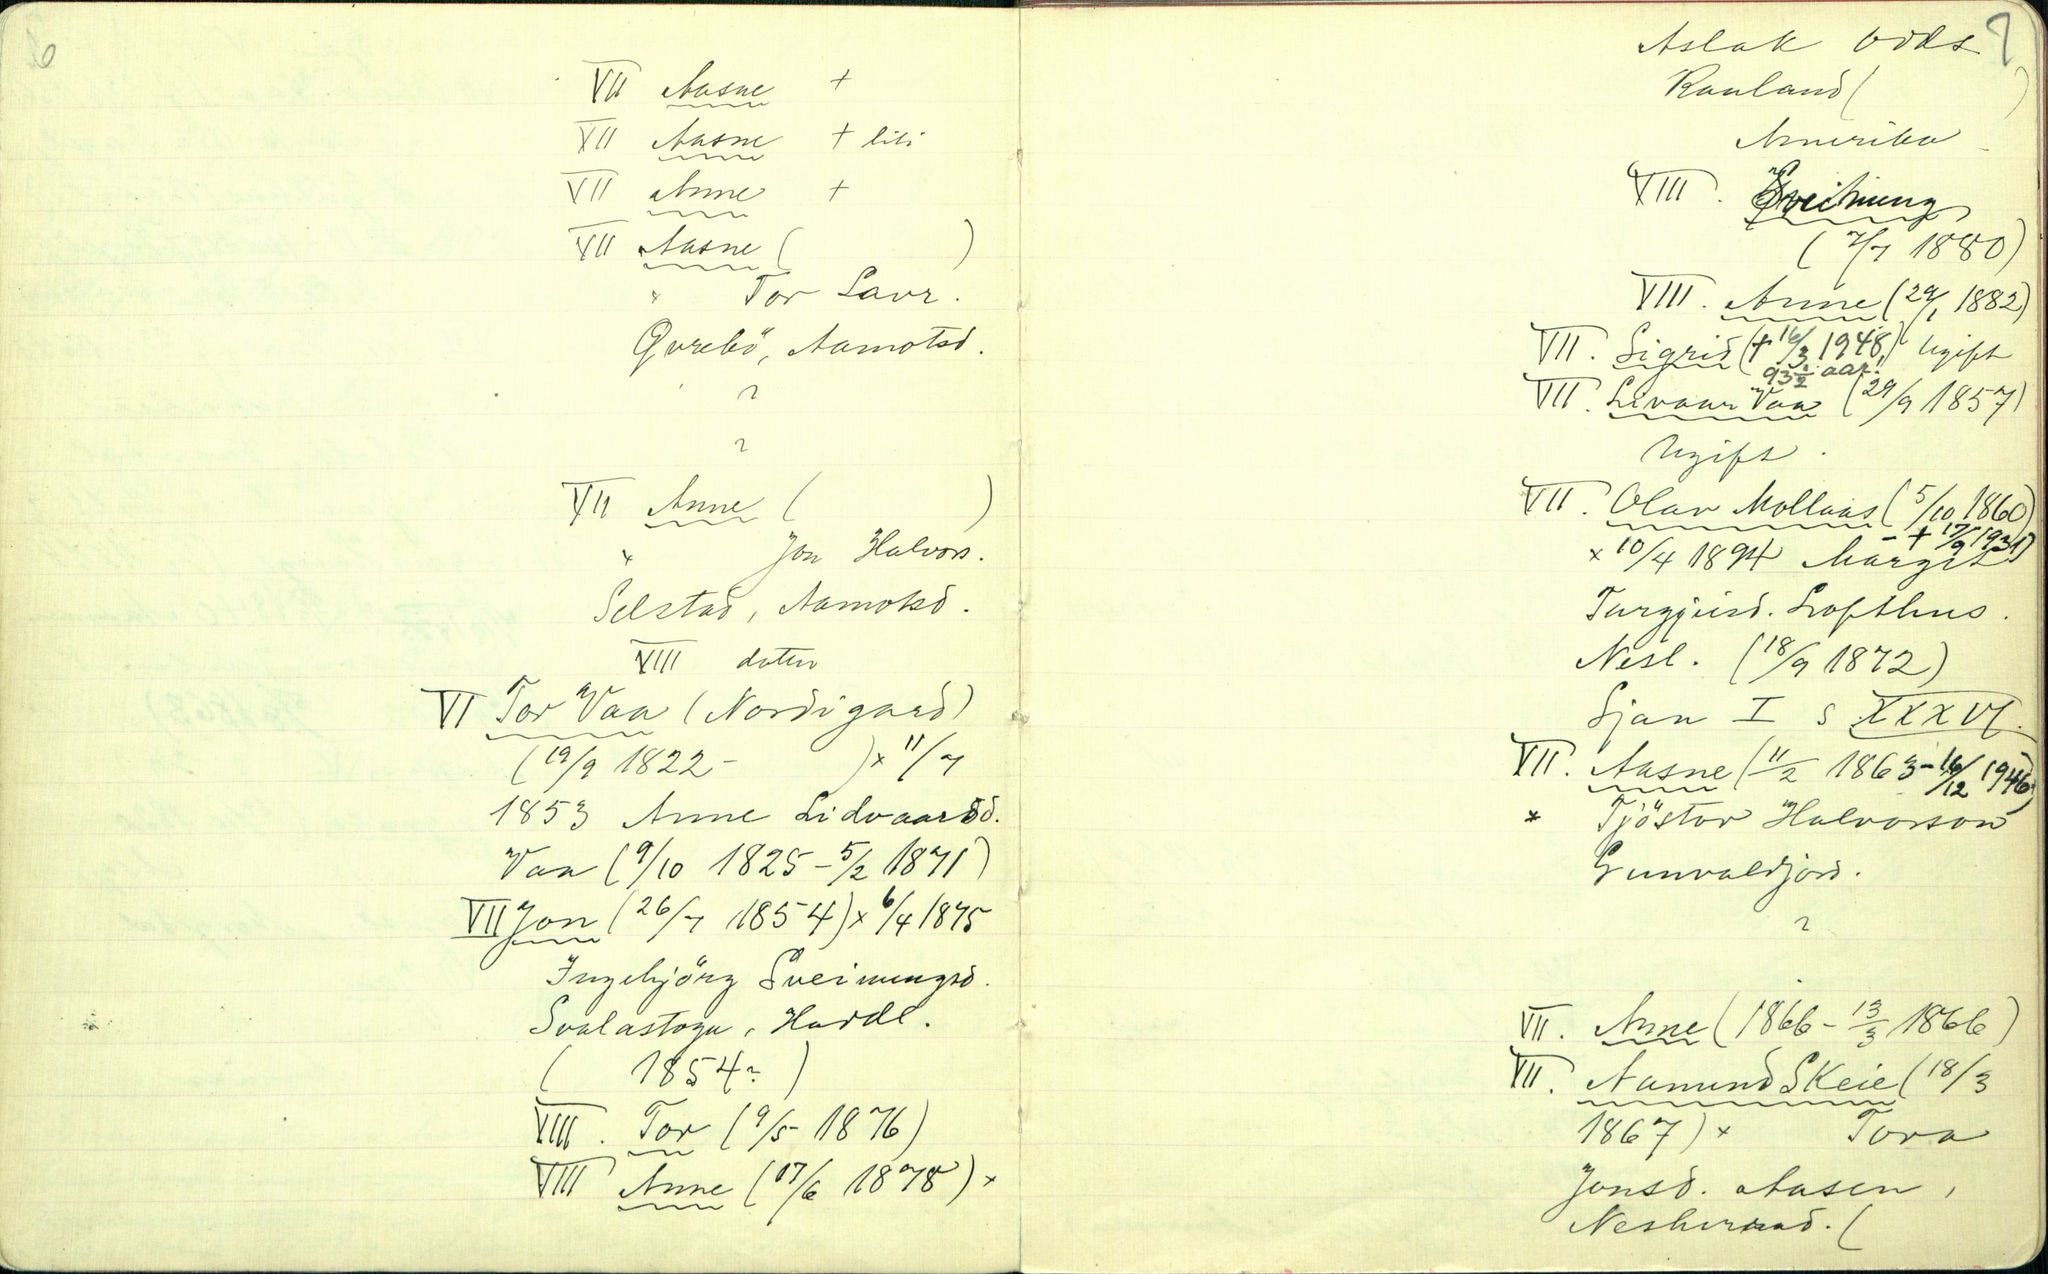 6
VII Aasne +
VII Aasne + liti
VII Anne +
VII Aasne ( )
" Tor Lavr.
Qvrebö, Aamotsd.
?
?
VII Anne ( )
" Jon Halvors.
Selstad, Aamotsd.
VIII doten
VI Tor Vaa (Nordigard)
(19/9 1822 - ) x 11/7
1853 Anne Lidvaarsd.
Vaa (9/10 1825 - 5/2 1871)
VII Jon (26/7 1854) x 6/4 1875
Ingebjörg Sveinungsd.
Svalastoga, Hardl.
( 1854? )
VIII. Tor (9/5 1876)
VIII Anne (17/6 1878) x
7
Aslak Odds
Rauland ( )
Amerika
VIII. Sveinung
(7/7 1880)
VIII. Anne (29/1 1882)
VII. Sigrid († 16/3 1948, Ugift
93 1/2 aar!)
VII. Livaar Vaa (29/9 1857)
Ugift.
VII. Olav Mollaas (5/10 1860
- + 17/9 1931)
x 10/4 1894 Margit
Turgjusd. Lofthus.
Nesl. (18/9 1872)
Sjan I s XXXVI.
VII. Aasne (11/2 1863 - 16/12 1946)
x Tjöstov Halvorson
Gunvaldjord.
?
VII. Anne (1866 - 13/3 1866)
VII. Aamund Skeie (18/3
1867) x Tora
Jonsd. Aasen,
Nesherad. (